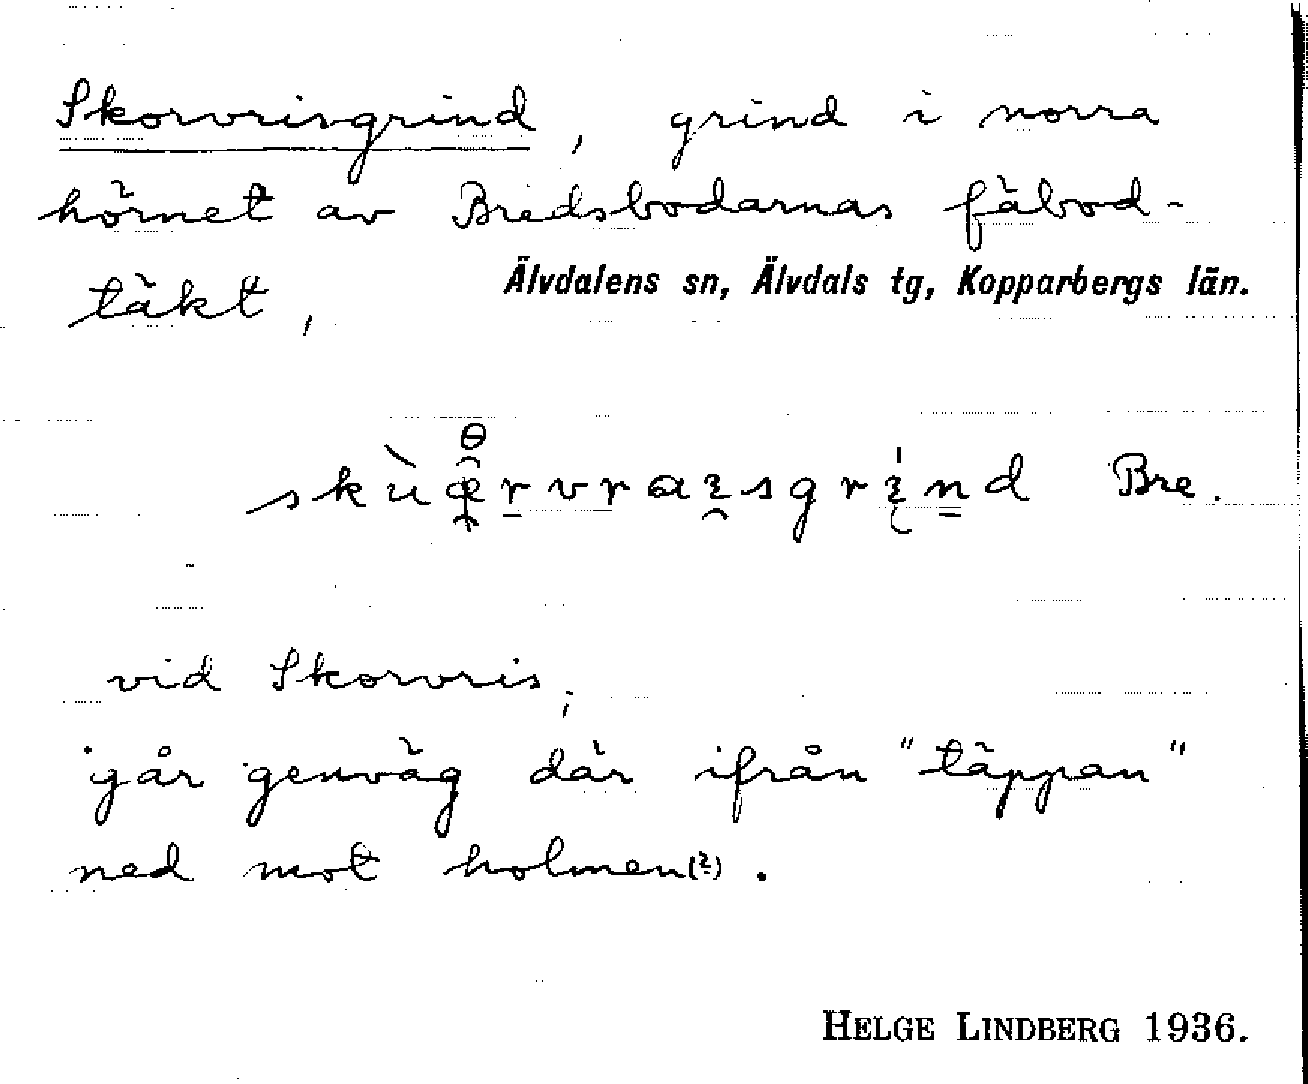 Skorvrisgrind, grind i norra
hörnet av Bredsbodarnas fäbod-
täkt,
Älvdalens sn, Älvdals tg, Kopparbergs län.
Bre.
vid Skorvris;
går genväg där ifrån "täppan"
ned mot holmen(?).
HELGE LINDBERG 1936.